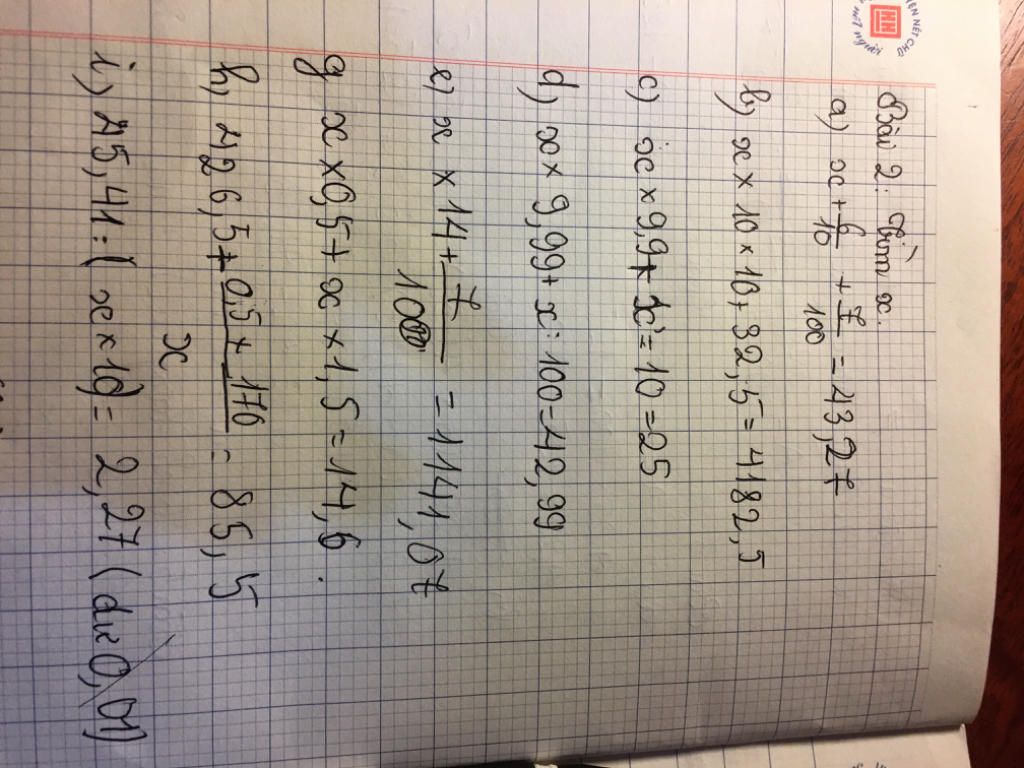 Bài 2: Tìm x.
a) x + 6/10 + 7/100 = 13,27
b) x × 10 × 10 + 32,5 = 4182,5
c) x × 9,9 + x : 10 = 25
d) x × 9,99 + x : 100 = 42,99
e) x × 14 + 7/100 = 1141,07
g x × 0,5 + x × 1,5 = 14,6.
h) 426,5 + 0,5 × 176/x = 85,5
i) 45,41 : ( x × 10) = 2,27 ( dư 0,01)
NÉT CHỮ
nết người